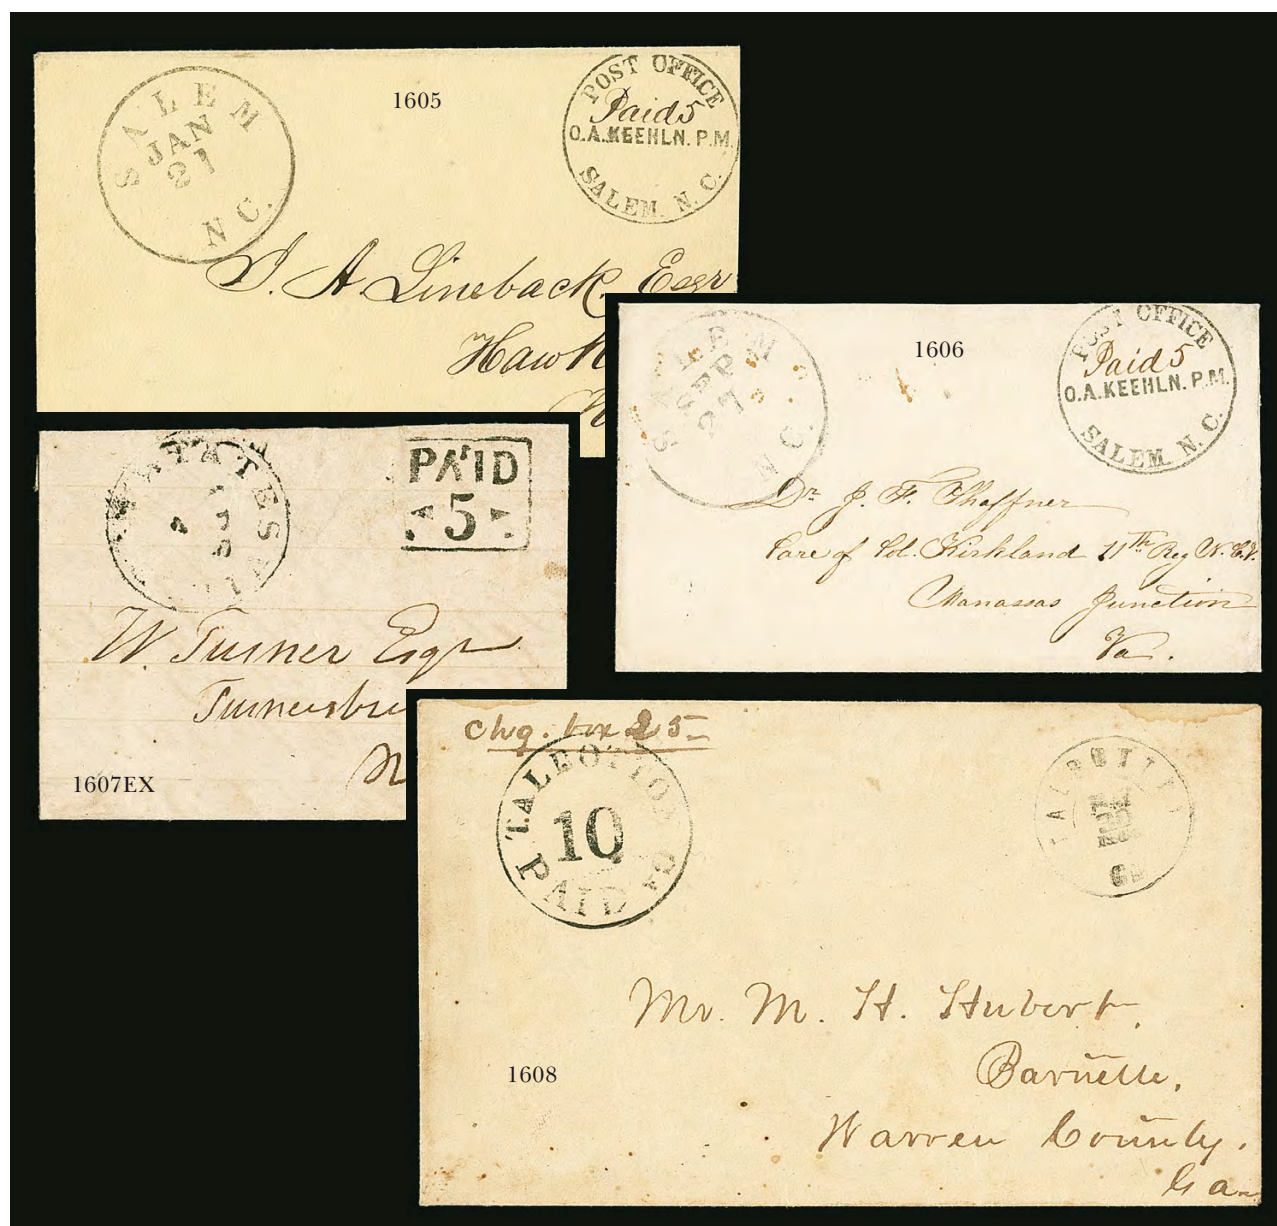 SALEM
JAN
21
N C.
1605
POST OFFICE
Paid 5
O.A.KEEHLN. P.M.
SALEM. N. C.
J. A. Lineback, Esqr
Hawk
SALEM
SEP
27
N C.
1606
POST OFFICE
Paid 5
O.A.KEEHLN. P.M.
SALEM. N. C.
Dr J. F. Shaffner
Care of Col. Kirkland 11th Reg N.C.V.
Manassas Junction
Va.
PAID
5
W. Turner Esqr
Turnersbu
N
1607EX
Chg. box 25
TALBOTTON GA
10
PAID
GA
Mr. M. H. Hubert,
Barnette,
1608
Warren County,
Ga